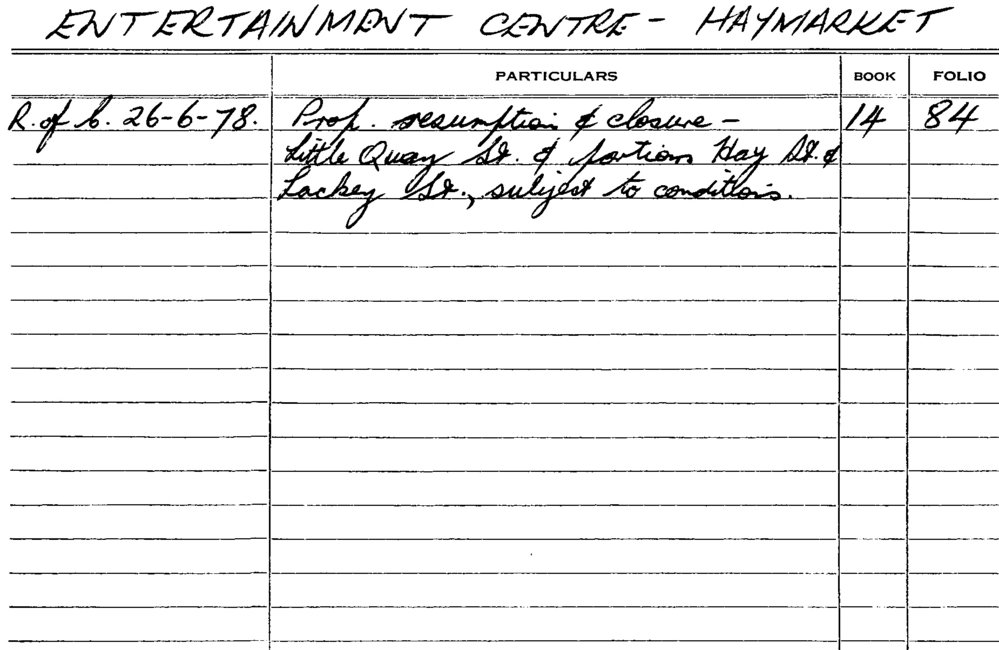 ENTERTAINMENT CENTRE - HAYMARKET
PARTICULARS BOOK FOLIO
R. of C. 26-6-78. Prop. resumption & closure - 14 84
Little Quay St. & portions Hay St. &
Lackey St., subject to conditions.